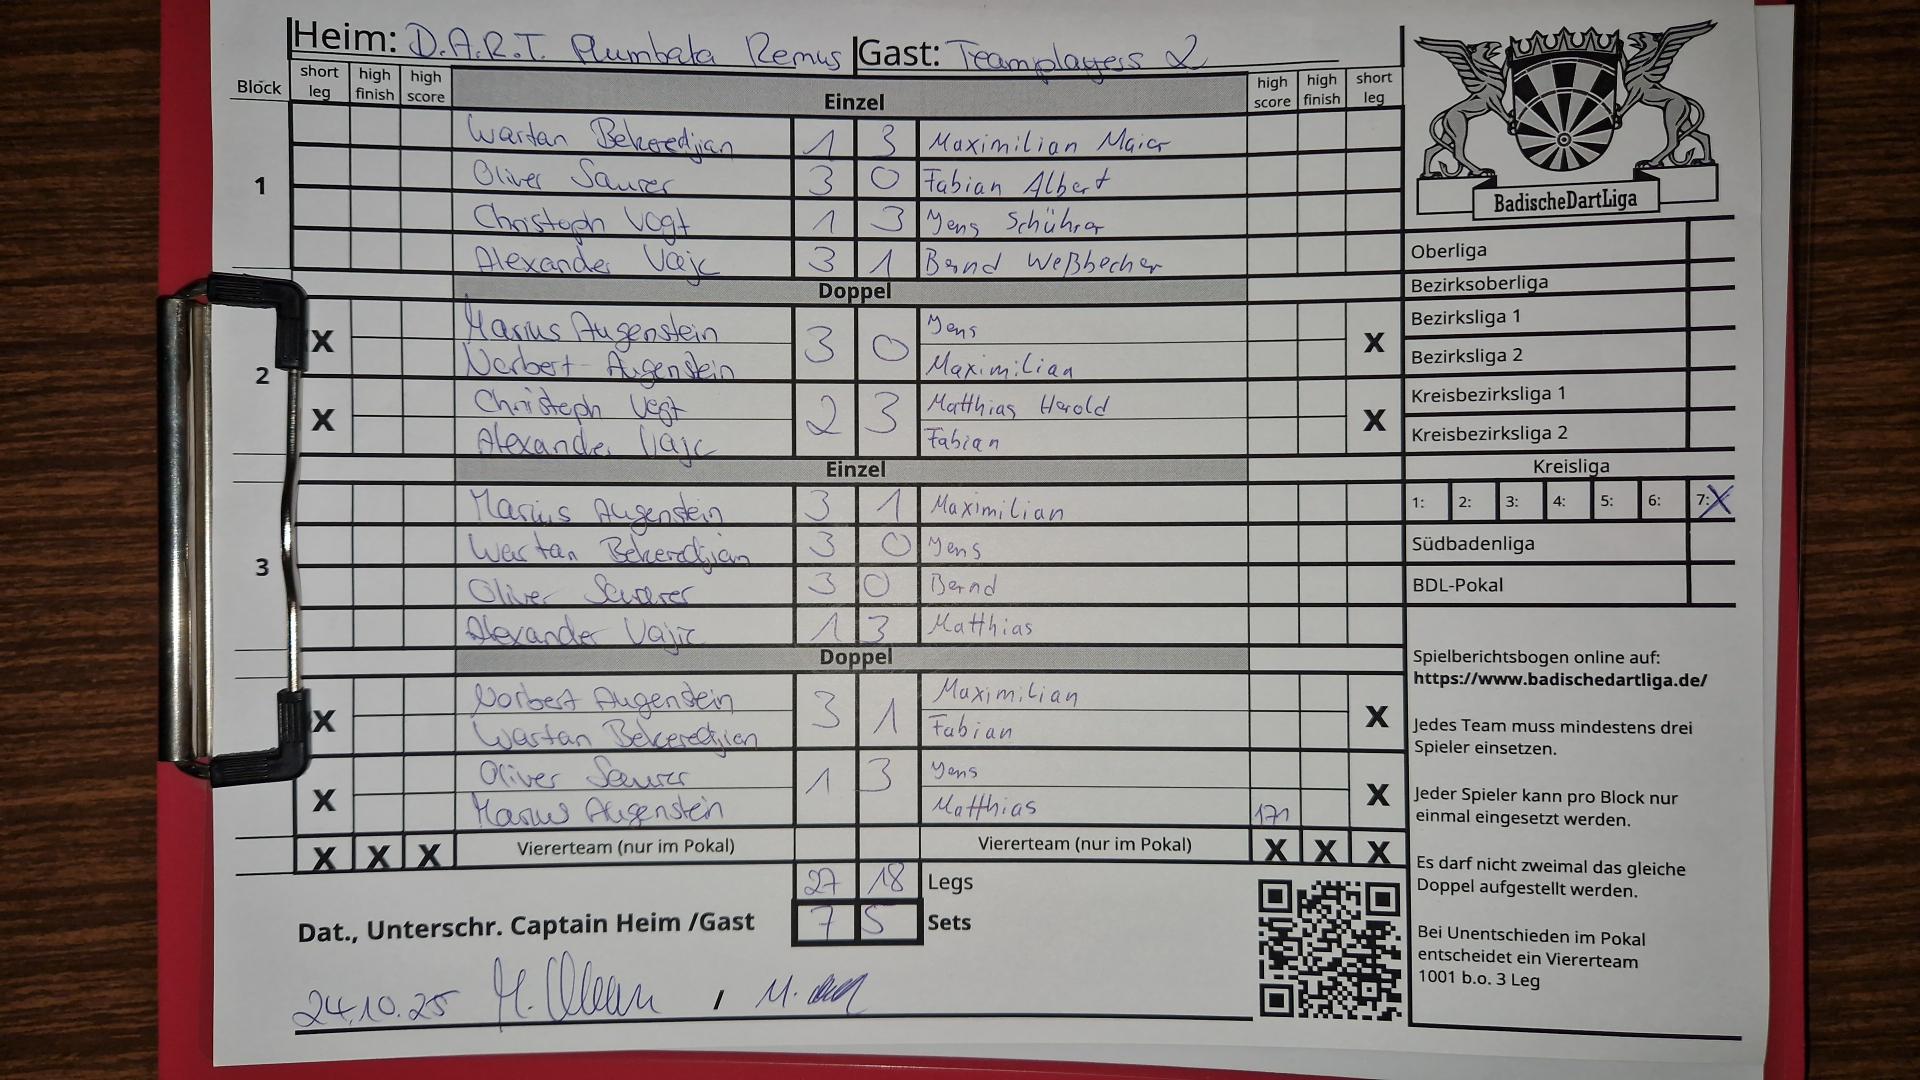 Heim: D.A.R.T. Plumbata Remus Gast: Teamplayers 2
Block short leg high finish high score Einzel high score high finish short leg
1
Wartan Bekeredjian 1 3 Maximilian Maier
Oliver Saurer 3 0 Fabian Albert
Christoph Vogt 1 3 Jens Schührer
Alexander Vajc 3 1 Bernd Weßbecher
Doppel
2
X Marius Augenstein 3 0 Jens X
Norbert Augenstein Maximilian
X Christoph Vogt 2 3 Matthias Herold X
Alexander Vajc Fabian
Einzel
3
Marius Augenstein 3 1 Maximilian
Wartan Bekeredjian 3 0 Jens
Oliver Saurer 3 0 Bernd
Alexander Vajic 1 3 Matthias
Doppel
X Norbert Augenstein 3 1 Maximilian X
Wartan Bekeredjian Fabian
X Oliver Saurer 1 3 Jens X
Marius Augenstein Matthias 171
X X X Viererteam (nur im Pokal) Viererteam (nur im Pokal) X X X
27 18 Legs
Dat., Unterschr. Captain Heim /Gast 7 5 Sets
24.10.25 /
BadischeDartLiga
Oberliga
Bezirksoberliga
Bezirksliga 1
Bezirksliga 2
Kreisbezirksliga 1
Kreisbezirksliga 2
Kreisliga
1: 2: 3: 4: 5: 6: 7: X
Südbadenliga
BDL-Pokal
Spielberichtsbogen online auf:
https://www.badischedartliga.de/
Jedes Team muss mindestens drei
Spieler einsetzen.
Jeder Spieler kann pro Block nur
einmal eingesetzt werden.
Es darf nicht zweimal das gleiche
Doppel aufgestellt werden.
Bei Unentschieden im Pokal
entscheidet ein Viererteam
1001 b.o. 3 Leg